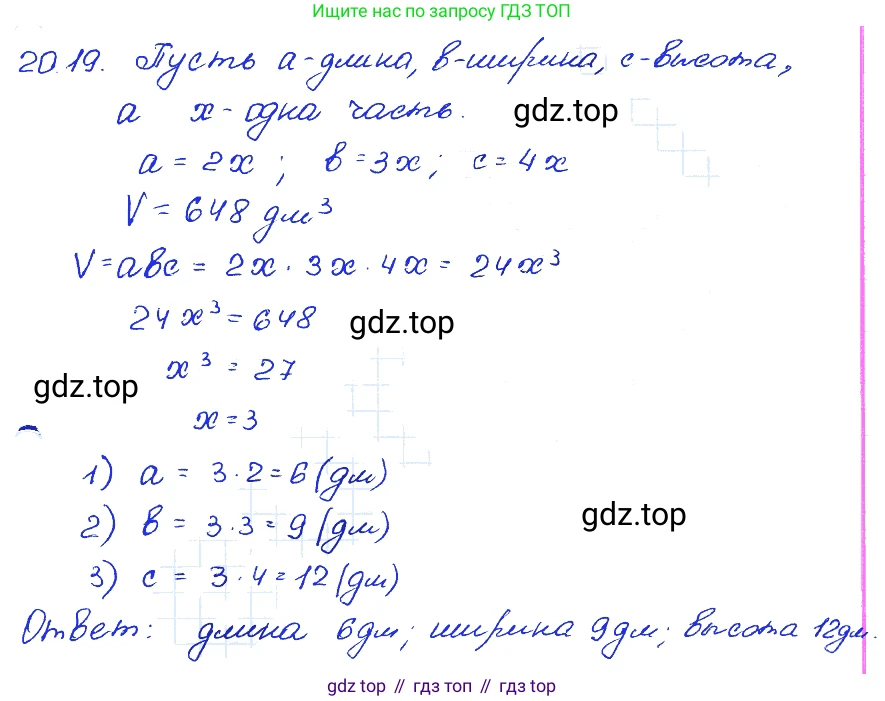 Ищите нас по запросу ГДЗ ТОП
20.19. Пусть a-длина, в-ширина, c-высота,
а x-одна часть. gdz.top
a = 2x ; в = 3x ; c = 4x
V = 648 дм³
V = aвc = 2x · 3x · 4x = 24x³
24x³ = 648 gdz.top
x³ = 27
gdz.top
x = 3
1) a = 3 · 2 = 6 (дм)
2) в = 3 · 3 = 9 (дм) gdz.top
3) c = 3 · 4 = 12 (дм)
Ответ: длина 6дм; ширина 9дм; высота 12дм.
gdz top // гдз топ // гдз top